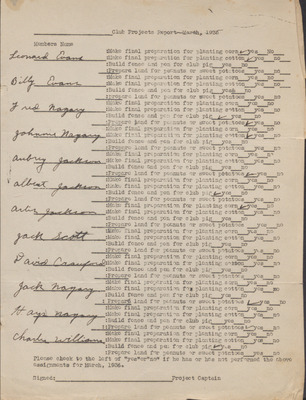 Club Projects Report--March, 1936
Members Name
Leonard Evans
(Make final preparation for planting corn yes no
(Make final preparation for planting cotton yes no
(Build fence and pen for club pig yes no
(Prepare land for peanuts or sweet potatoes yes no
Billy Evans
(Make final preparation for planting corn yes no
(Make final preparation for planting cotton yes no
(Build fence and pen for club pig yes no
(Prepare land for peanuts or sweet potatoes yes no
Fred Nagary
(Make final preparation for planting corn yes no
(Make final preparation for planting cotton yes no
(Build fence and pen for club pig yes no
(Prepare land for peanuts or sweet potatoes yes no
Johnnie Nagary
(Make final preparation for planting corn yes no
(Make final preparation for planting cotton yes no
(Build fence and pen for club pig yes no
(Prepare land for peanuts or sweet potatoes yes no
Aubrey Jackson
(Make final preparation for planting corn yes no
(Make final preparation for planting cotton yes no
(Build fence and pen for club pig yes no
(Prepare land for peanuts or sweet potatoes yes no
Albert Jackson
(Make final preparation for planting corn yes no
(Make final preparation for planting cotton yes no
(Build fence and pen for club pig yes no
(Prepare land for peanuts or sweet potatoes yes no
Jackson
(Make final preparation for planting corn yes no
(Make final preparation for planting cotton yes no
(Build fence and pen for club pig yes no
(Prepare land for peanuts or sweet potatoes yes no
Jack Scott
(Make final preparation for planting corn yes no
(Make final preparation for planting cotton yes no
(Build fence and pen for club pig yes no
(Prepare land for peanuts or sweet potatoes yes no
David Crawford
(Make final preparation for planting corn yes no
(Make final preparation for planting cotton yes no
(Build fence and pen for club pig yes no
(Prepare land for peanuts or sweet potatoes yes no
Jack Nagary
(Make final preparation for planting corn yes no
(Make final preparation for planting cotton yes no
(Build fence and pen for club pig yes no
(Prepare land for peanuts or sweet potatoes yes no
Nagary
(Make final preparation for planting corn yes no
(Make final preparation for planting cotton yes no
(Build fence and pen for club pig yes no
(Prepare land for peanuts or sweet potatoes yes no
Charlie William
(Make final preparation for planting corn yes no
(Make final preparation for planting cotton yes no
(Build fence and pen for club pig yes no
(Prepare land for peanuts or sweet potatoes yes no
Please check to the left of "yes" or "no" if he has or has not performed the above
assignments for March, 1936.
Signed: Project Captain